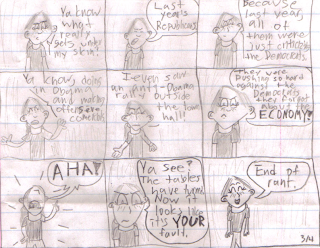 Ya know
what
really
gets under
my skin?
Last
year's
Republicans.
Because
last year,
all of
them were
just criticizing
the Democrats.
Ya know, doing
in Obama
and making
offensive
comments
I even saw
an anti-Obama
outside
the town
hall!
They were
pushing so hard
against the
Democrats,
they forgot
about the
ECONOMY?
AHA!
Ya see?
The tables
have turned.
Now it
looks
it's YOUR
fault.
End of
rant.